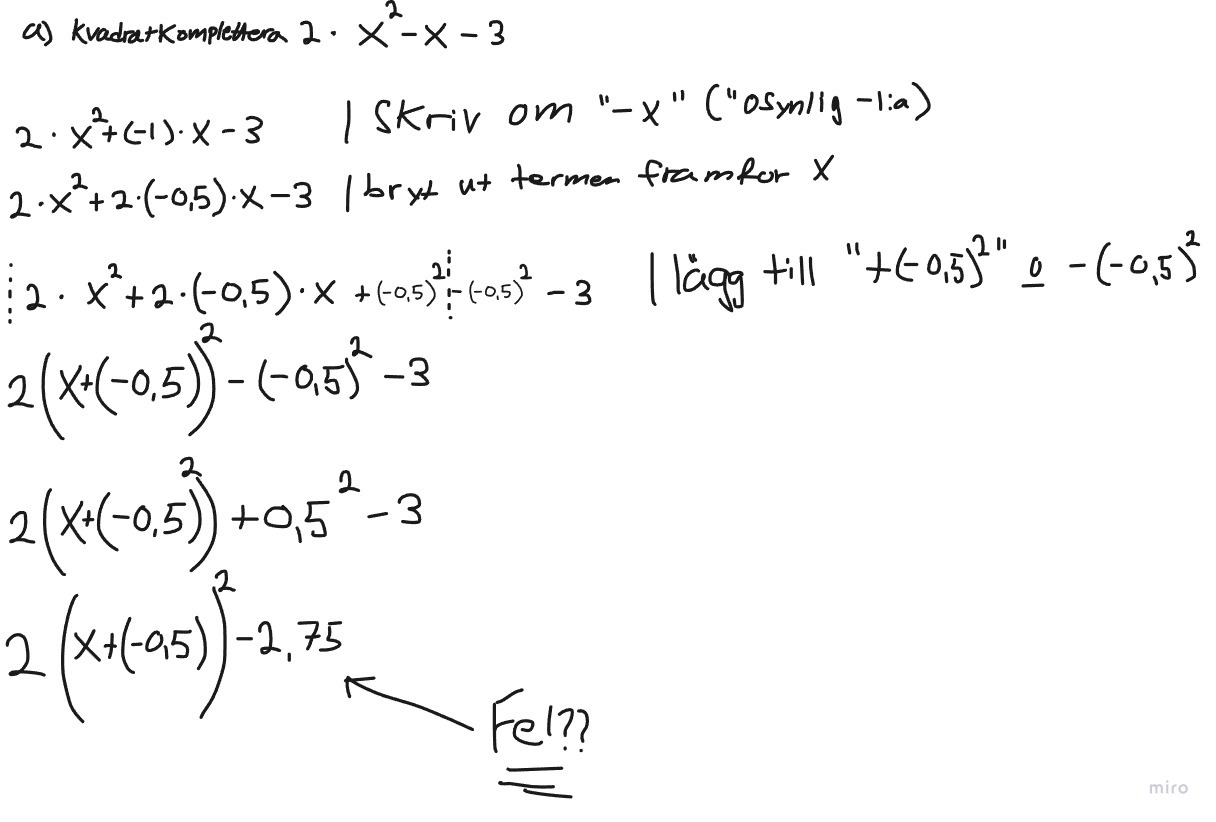 a) Kvadratkomplettera 2 · x² - x - 3
2 · x² + (-1) · x - 3 | Skriv om "-x" ("osynlig -1:a)
2 · x² + 2 · (-0,5) · x - 3 | bryt ut termen framför x
2 · x² + 2 · (-0,5) · x + (-0,5)² - (-0,5)² - 3 | lägg till "+(-0,5)²" o - (-0,5)²
2(x+(-0,5))² - (-0,5)² - 3
2(x+(-0,5))² + 0,5² - 3
2(x+(-0,5))² - 2,75
Fel??
miro